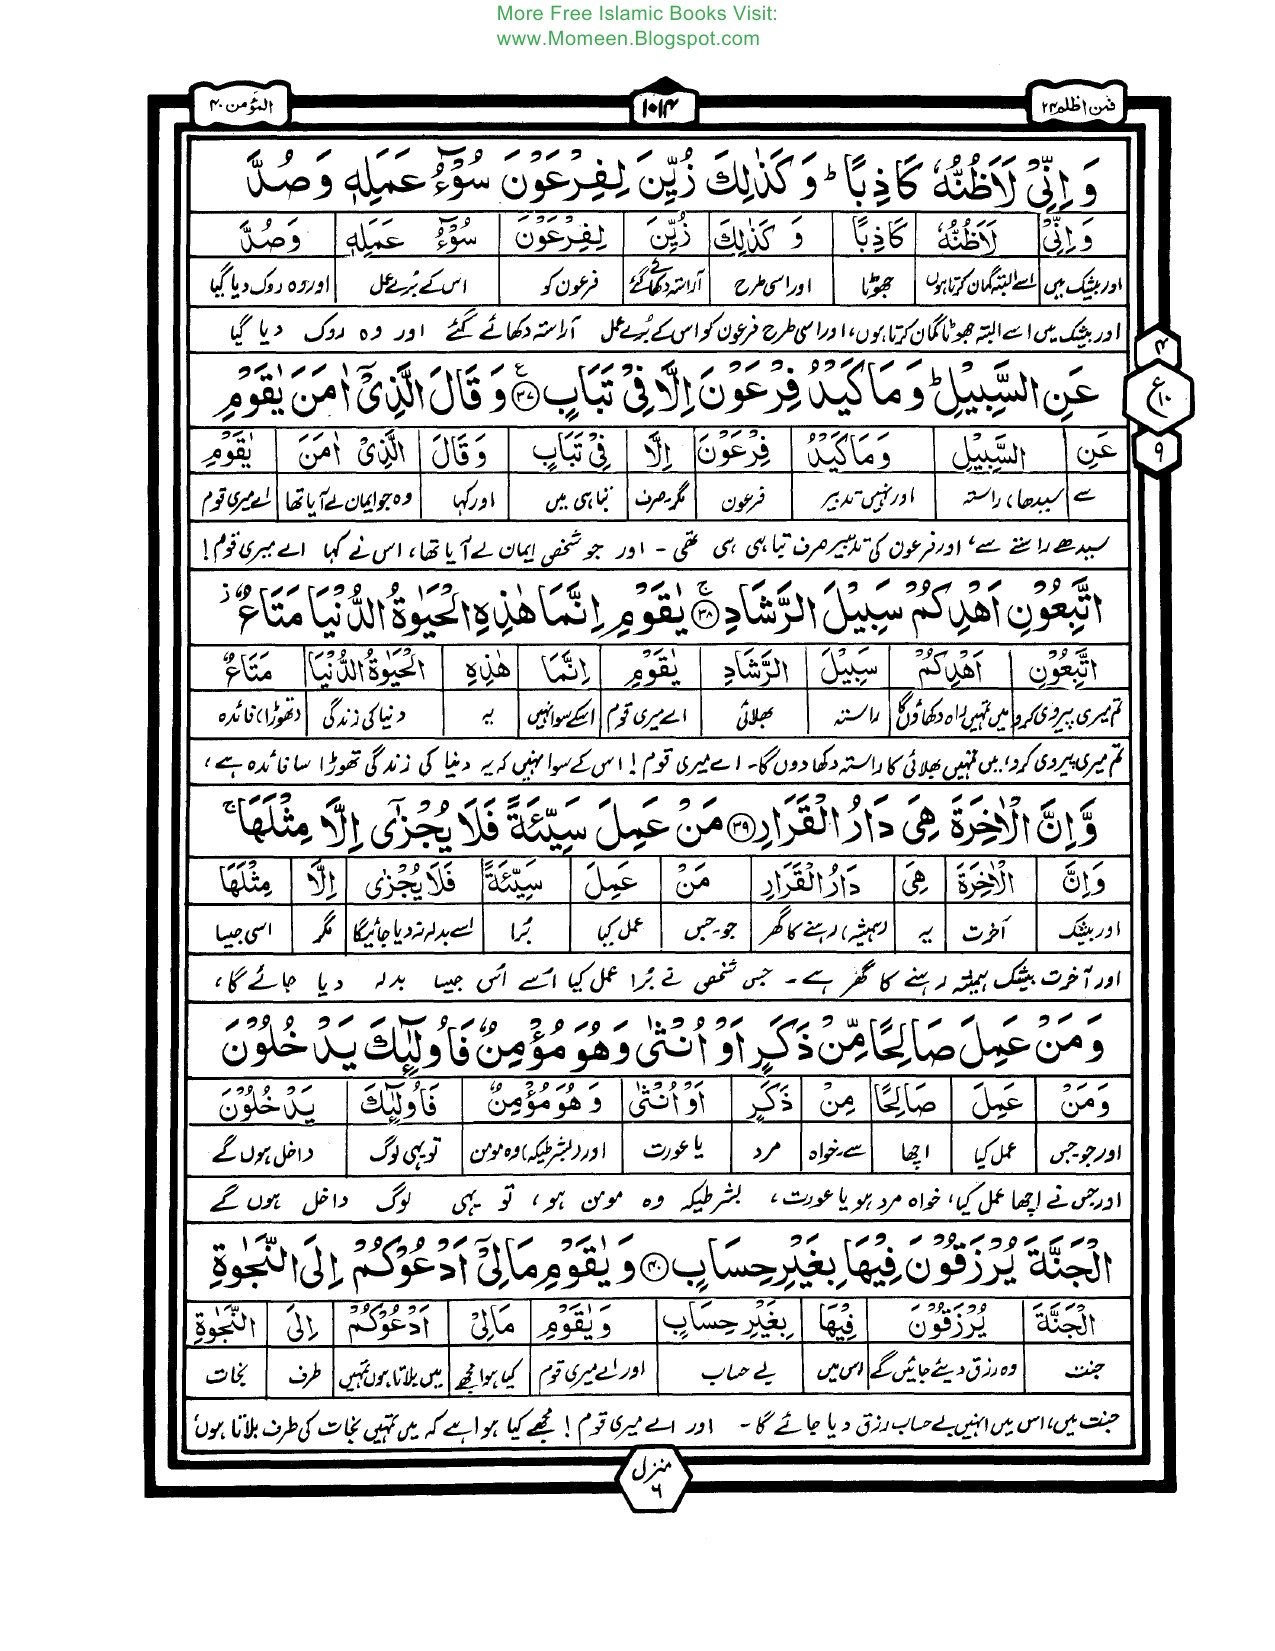 More Free Islamic Books Visit:
www.Momeen.Blogspot.com
فمن اظلم ۲۴
۱۰۱۴
المؤمن ۴۰
وَ اِنِّیْ لَاَظُنُّهٗ كَاذِبًا ؕ وَ كَذٰلِكَ زُیِّنَ لِفِرْعَوْنَ سُوْٓءُ عَمَلِهٖ وَ صُدَّ
وَ اِنِّیْ لَاَظُنُّهٗ كَاذِبًا وَ كَذٰلِكَ زُیِّنَ لِفِرْعَوْنَ سُوْٓءُ عَمَلِهٖ وَ صُدَّ
اور بیشک میں اسے البتہ گمان کرتا ہوں جھوٹا اور اسی طرح آراستہ دکھائے گئے فرعون کو اس کے بُرے عمل اور وہ روک دیا گیا
اور بیشک میں اسے البتہ جھوٹا گمان کرتا ہوں، اور اسی طرح فرعون کو اس کے بُرے عمل آراستہ دکھائے گئے اور وہ روک دیا گیا
۴
ع ۱۰
۹
عَنِ السَّبِیْلِ ؕ وَ مَا كَیْدُ فِرْعَوْنَ اِلَّا فِیْ تَبَابٍ ﴿۳۷﴾ۧ وَ قَالَ الَّذِیْۤ اٰمَنَ یٰقَوْمِ
عَنِ السَّبِیْلِ وَ مَا كَیْدُ فِرْعَوْنَ اِلَّا فِیْ تَبَابٍ وَ قَالَ الَّذِیْۤ اٰمَنَ یٰقَوْمِ
سے (سیدھا) راستہ اور نہیں تدبیر فرعون مگر۔صرف تباہی میں اور کہا وہ جو ایمان لے آیا تھا اے میری قوم
سیدھے راستے سے، اور فرعون کی تدبیر صرف تباہی ہی تھی ۔ اور جو شخص ایمان لے آیا تھا، اس نے کہا اے میری قوم!
اتَّبِعُوْنِ اَهْدِكُمْ سَبِیْلَ الرَّشَادِ ﴿۳۸﴾ۚ یٰقَوْمِ اِنَّمَا هٰذِهِ الْحَیٰوةُ الدُّنْیَا مَتَاعٌ ۫
اتَّبِعُوْنِ اَهْدِكُمْ سَبِیْلَ الرَّشَادِ یٰقَوْمِ اِنَّمَا هٰذِهِ الْحَیٰوةُ الدُّنْیَا مَتَاعٌ
تم میری پیروی کرو میں تمہیں راہ دکھاؤں گا راستہ بھلائی اے میری قوم اسکے سوا نہیں یہ دنیا کی زندگی (تھوڑا) فائدہ
تم میری پیروی کرو، میں تمہیں بھلائی کا راستہ دکھا دوں گا۔ اے میری قوم! اس کے سوا نہیں کہ یہ دنیا کی زندگی تھوڑا سا فائدہ ہے،
وَّ اِنَّ الْاٰخِرَةَ هِیَ دَارُ الْقَرَارِ ﴿۳۹﴾ مَنْ عَمِلَ سَیِّئَةً فَلَا یُجْزٰۤی اِلَّا مِثْلَهَا ۚ
وَ اِنَّ الْاٰخِرَةَ هِیَ دَارُ الْقَرَارِ مَنْ عَمِلَ سَیِّئَةً فَلَا یُجْزٰۤی اِلَّا مِثْلَهَا
اور بیشک آخرت یہ (ہمیشہ) رہنے کا گھر جو۔جس عمل کیا بُرا اسے بدلہ نہ دیا جائیگا مگر اسی جیسا
اور آخرت بیشک ہمیشہ رہنے کا گھر ہے۔ جس شخص نے بُرا عمل کیا اُسے اُس جیسا بدلہ دیا جائے گا،
وَ مَنْ عَمِلَ صَالِحًا مِّنْ ذَكَرٍ اَوْ اُنْثٰی وَ هُوَ مُؤْمِنٌ فَاُولٰٓئِكَ یَدْخُلُوْنَ
وَ مَنْ عَمِلَ صَالِحًا مِنْ ذَكَرٍ اَوْ اُنْثٰی وَ هُوَ مُؤْمِنٌ فَاُولٰٓئِكَ یَدْخُلُوْنَ
اور جو۔جس عمل کیا اچھا سے۔خواہ مرد یا عورت اور (بشرطیکہ) وہ مومن تو یہی لوگ داخل ہوں گے
اور جس نے اچھا عمل کیا، خواہ مرد ہو یا عورت، بشرطیکہ وہ مومن ہو، تو یہی لوگ داخل ہوں گے
الْجَنَّةَ یُرْزَقُوْنَ فِیْهَا بِغَیْرِ حِسَابٍ ﴿۴۰﴾ وَ یٰقَوْمِ مَا لِیْۤ اَدْعُوْكُمْ اِلَی النَّجٰوةِ
الْجَنَّةَ یُرْزَقُوْنَ فِیْهَا بِغَیْرِ حِسَابٍ وَ یٰقَوْمِ مَا لِیْۤ اَدْعُوْكُمْ اِلَی النَّجٰوةِ
جنت وہ رزق دیئے جائیں گے اس میں بے حساب اور اے میری قوم کیا ہوا مجھے میں بلاتا ہوں تمہیں طرف نجات
جنت میں، اس میں انہیں بے حساب رزق دیا جائے گا۔ اور اے میری قوم! مجھے کیا ہوا ہے کہ میں تمہیں نجات کی طرف بلاتا ہوں
منزل ۶